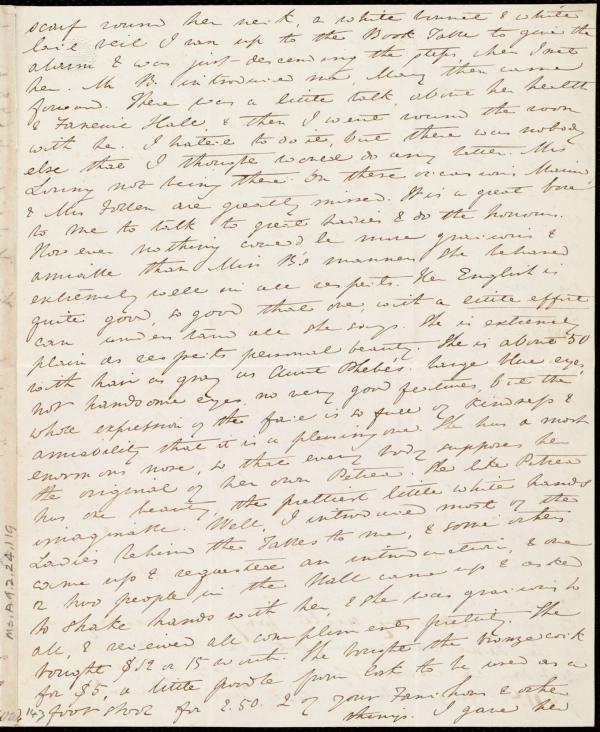 scarf round her neck, a white bonnet & white
lace veil I ran up to the Book Table to give the
alarm & was just descending the steps, when I met
her. Mr B. introduced me, Mary then came
forward. There was a little talk about her health
& Faneuil Hall, & then I went round the room
with her. I hated to do it, but there was nobody
else that I thought would do any better. Mrs
Loring not being there. On these occasions Maria
& Mrs Follen are greatly missed. It is a great bore
to me to talk to great ladies & do the honours.
However nothing could be more gracious &
amiable than Miss B's manner. She behaved
extremely well in all respects. Her English is
quite good, so good that one, with a little effort
can understand all she says. She is extremely
plain as respects personal beauty. She is about 50
with hair as gray as Aunt Phebe's. large blue eyes,
not handsome eyes, no very good features, but the
whole expression of the face is so full of kindness &
amiability that it is a pleasing one. She has a most
enormous nose, so that every body supposes her
the original of her own Petrea. But like Petrea
has one beauty, the prettiest little white hands
imaginable. Well, I introduced most of the
Ladies behind the Tables to me, & some others
came up & requested an introduction, & one
or two people in the Hall came up & asked
to shake hands with her, & she was gracious to
all, & received all compliments prettily. She
bought $12 or 15 worth. She bought the bronze cock
for $5, a little poodle from Cork to be used as a
foot stool for 2.50. 2 of your Fanchons & other
things. I gave her
Ms.A.9.2.24.119